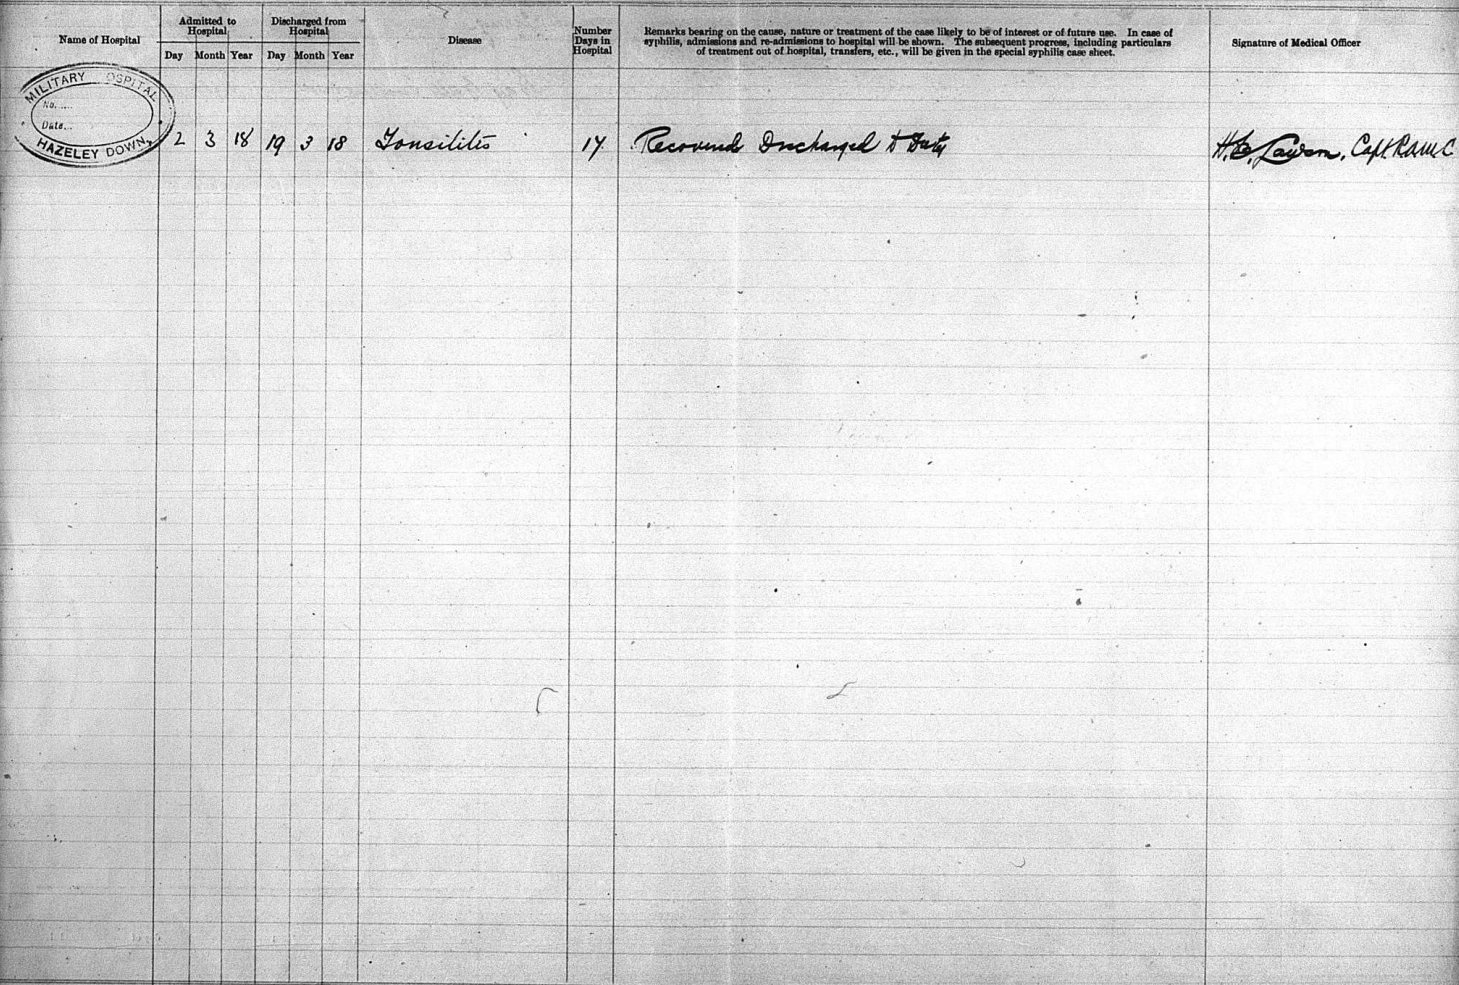 Name of Hospital
Admitted to
Hospital
Day Month Year
Discharged from
Hospital
Day Month Year
Disease
Number
Days in
Hospital
Remarks bearing on the cause, nature or treatment of the case likely to be of interest or of future use. In case of
syphilis, admissions and re-admissions to hospital will be shown. The subsequent progress, including particulars
of treatment out of hospital, transfers, etc., will be given in the special syphilis case sheet.
Signature of Medical Officer
MILITARY OSPITAL
No.....
Date...
HAZELEY DOWN,
2 3 18 19 3 18 Tonsilitis 17 Recovered Discharged to Duty H. E. Lawson, Capt. R.A.M.C